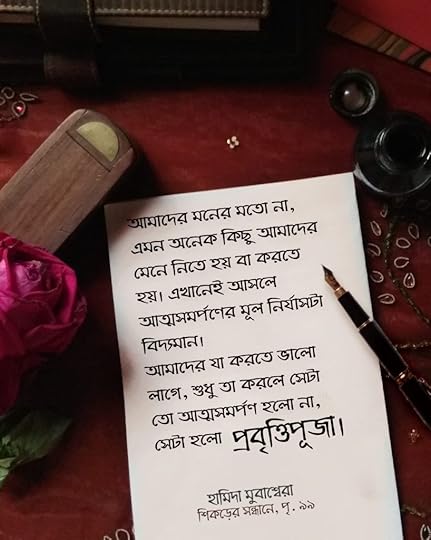 আমাদের মনের মতো না,
এমন অনেক কিছু আমাদের
মেনে নিতে হয় বা করতে
হয়। এখানেই আসলে
আত্মসমর্পণের মূল নির্যাসটা
বিদ্যমান।
আমাদের যা করতে ভালো
লাগে, শুধু তা করলে সেটা
তো আত্মসমর্পণ হলো না,
সেটা হলো প্রবৃত্তিপূজা।
হামিদা মুবাশ্বেরা
শিকড়ের সন্ধানে, পৃ. ৯৯